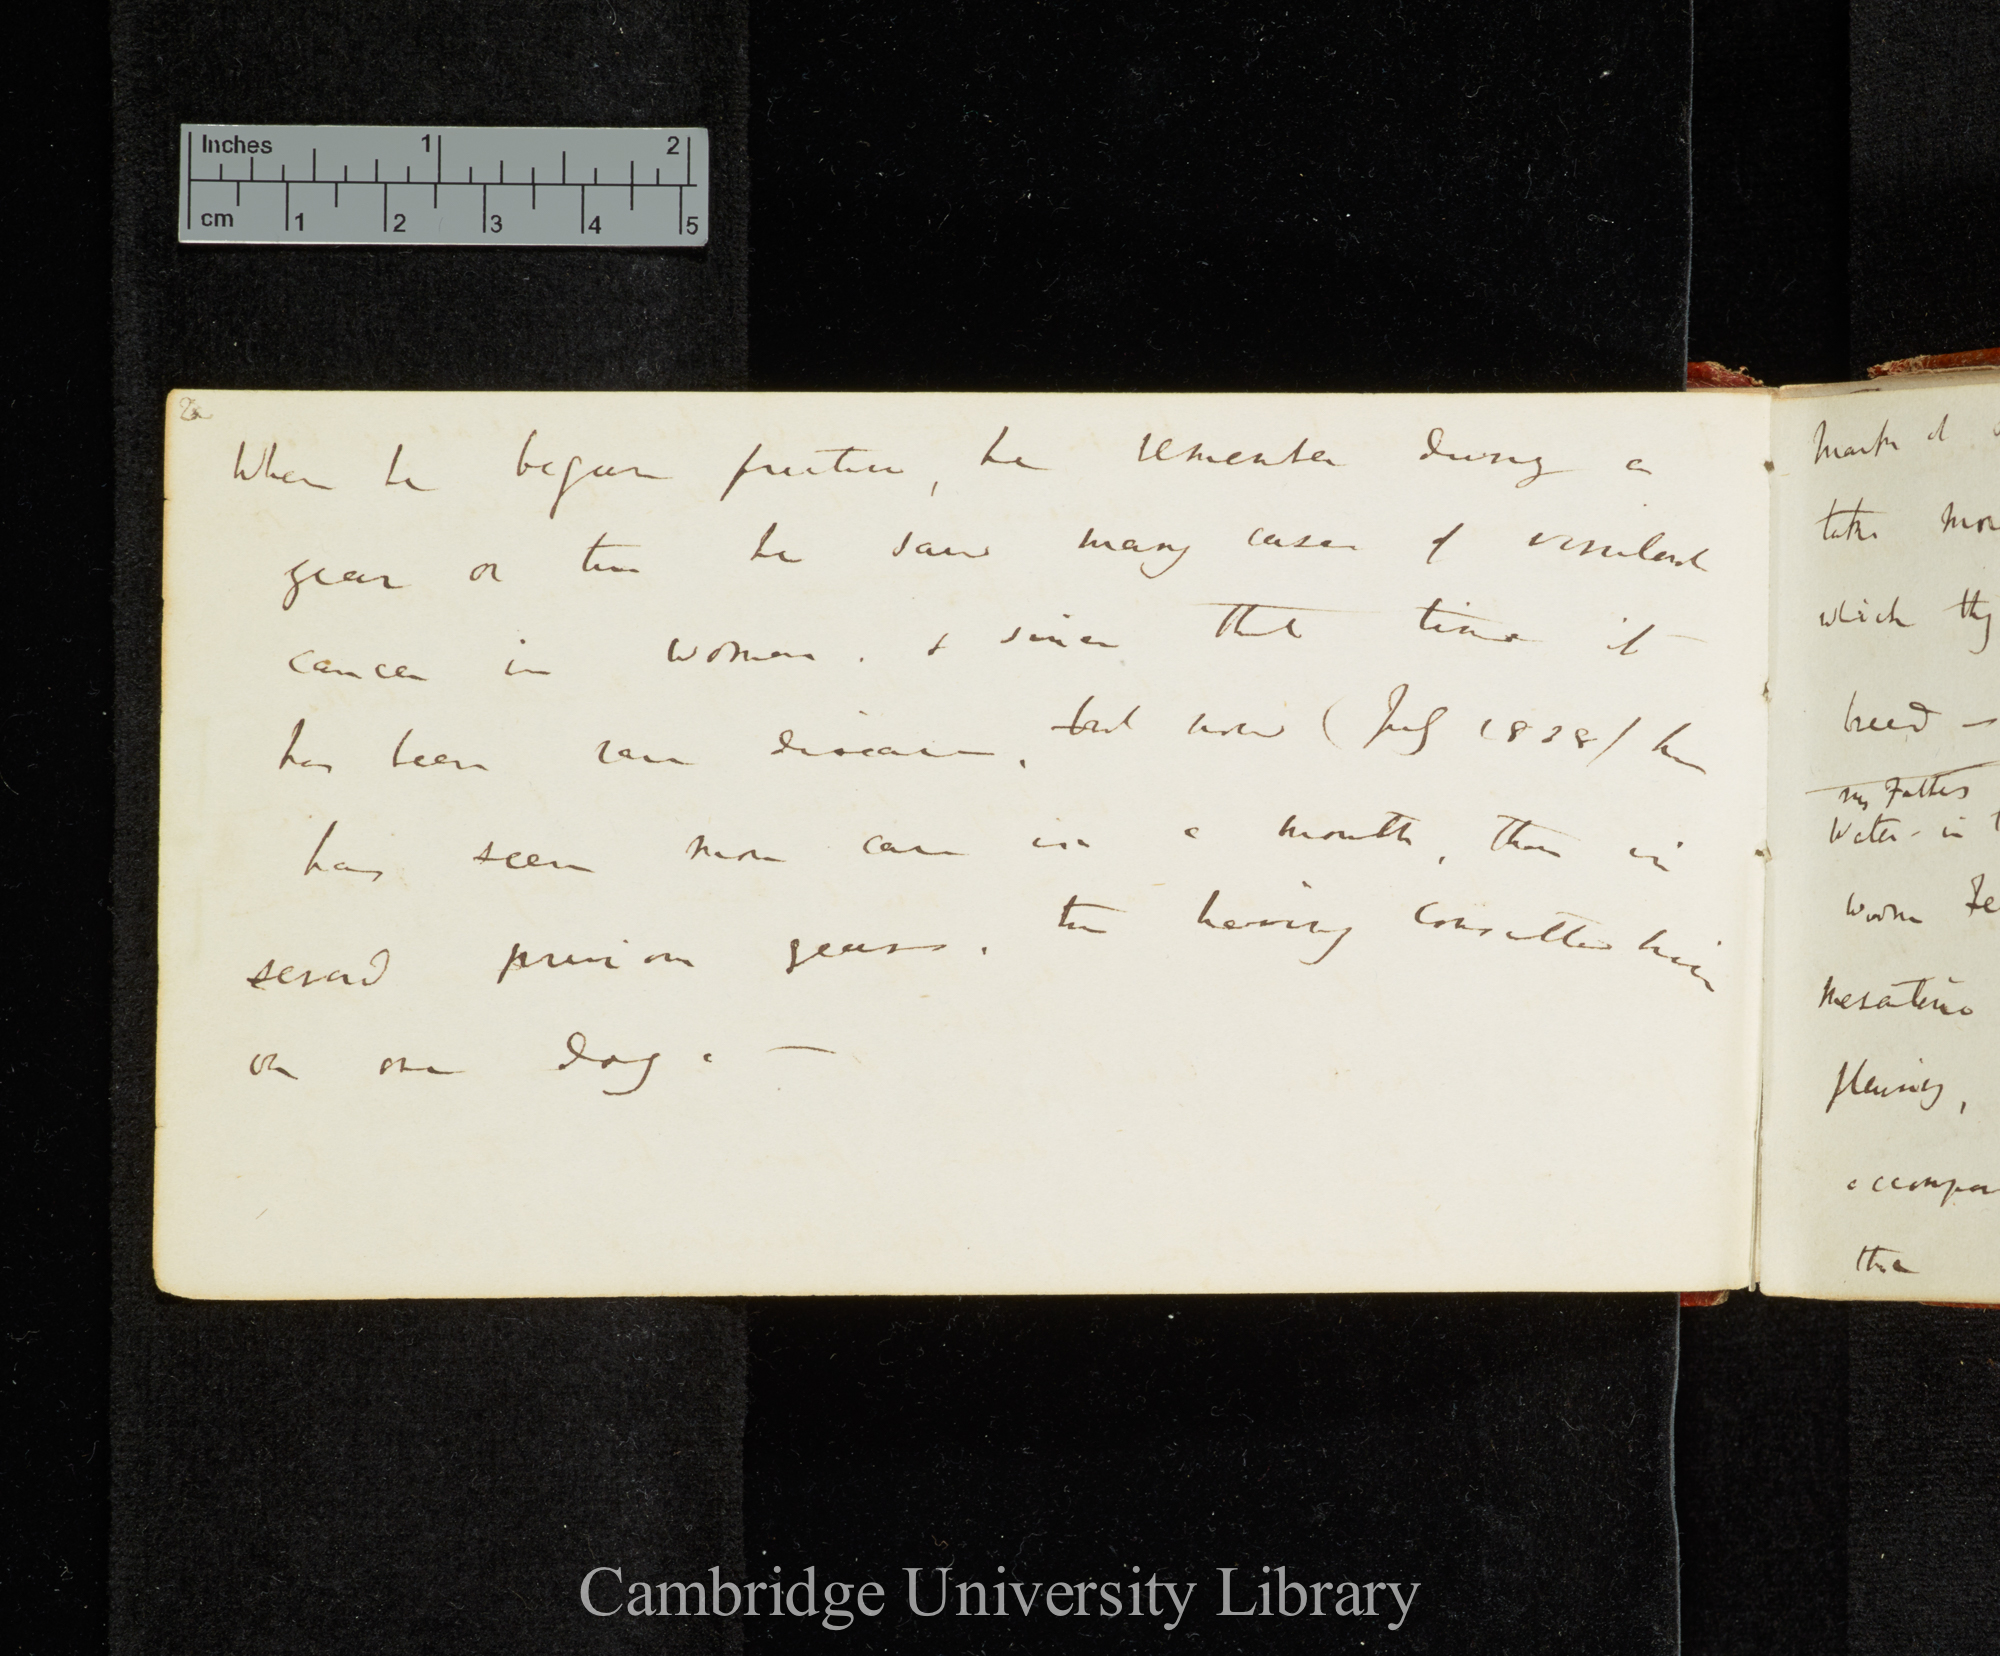 Inches 1 2
cm 1 2 3 4 5
2
When he began practice, he remember during a
year or two he saw many cases of virulent
cancer in women. & since that time it
has been rare disease, but now (July 1838) he
has seen more cases in a month, than in
several previous years. two having consulted him
on one day. —
takes mor
which they
breed —
my Father
Water - in
Worm
accompa
the
Cambridge University Library